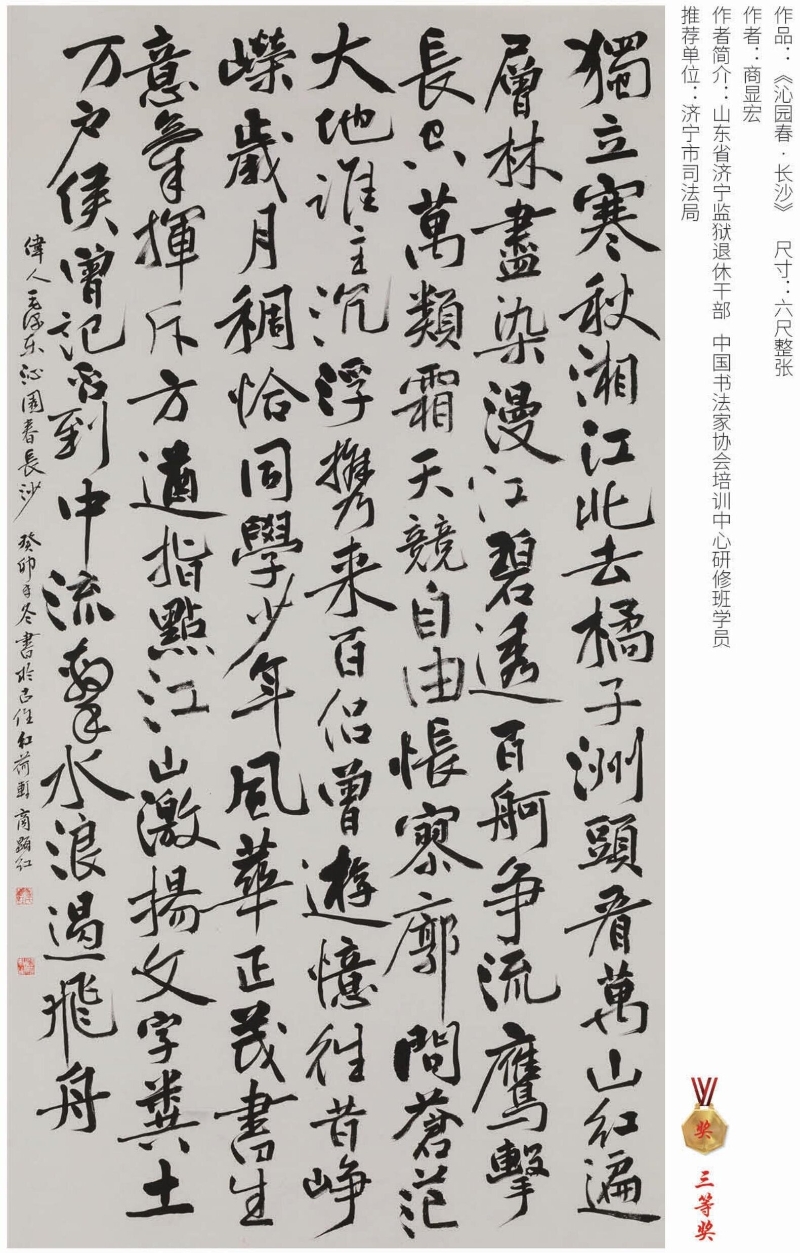 作品：《沁园春·长沙》 尺寸：六尺整张
作者：商显宏
作者简介：山东省济宁监狱退休干部 中国书法家协会培训中心研修班学员
推荐单位：济宁市司法局
獨立寒秋湘江北去橘子洲頭看萬山红遍
層林盡染漫江碧透百舸争流鷹擊
長空萬類霜天競自由悵寥廓問蒼茫
大地誰主沉浮攜来百侣曾遊憶往昔崢
嶸歲月稠恰同學少年風華正茂書生
意氣揮斥方遒指點江山激揚文字糞土
万户侯曾記否到中流擊水浪遏飛舟
偉人毛泽东沁園春長沙 癸卯年冬書於古任红荷軒商顯
奖
三等奖